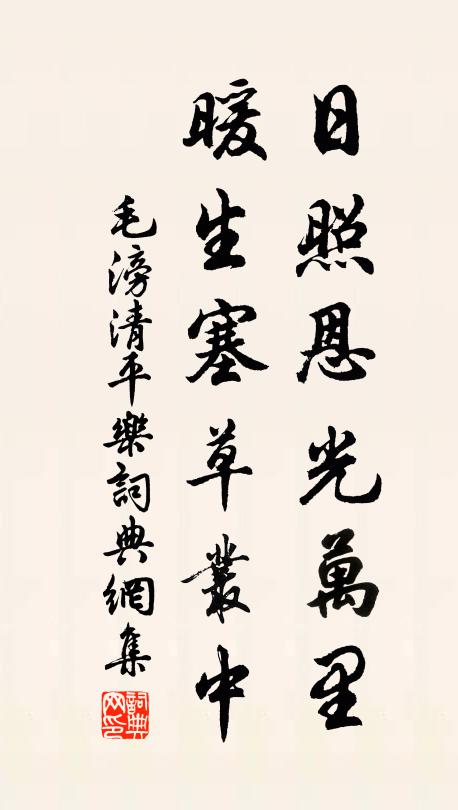 日照恩光萬里
暖生塞草叢中
毛滂清平樂詞典網集
詞典网印